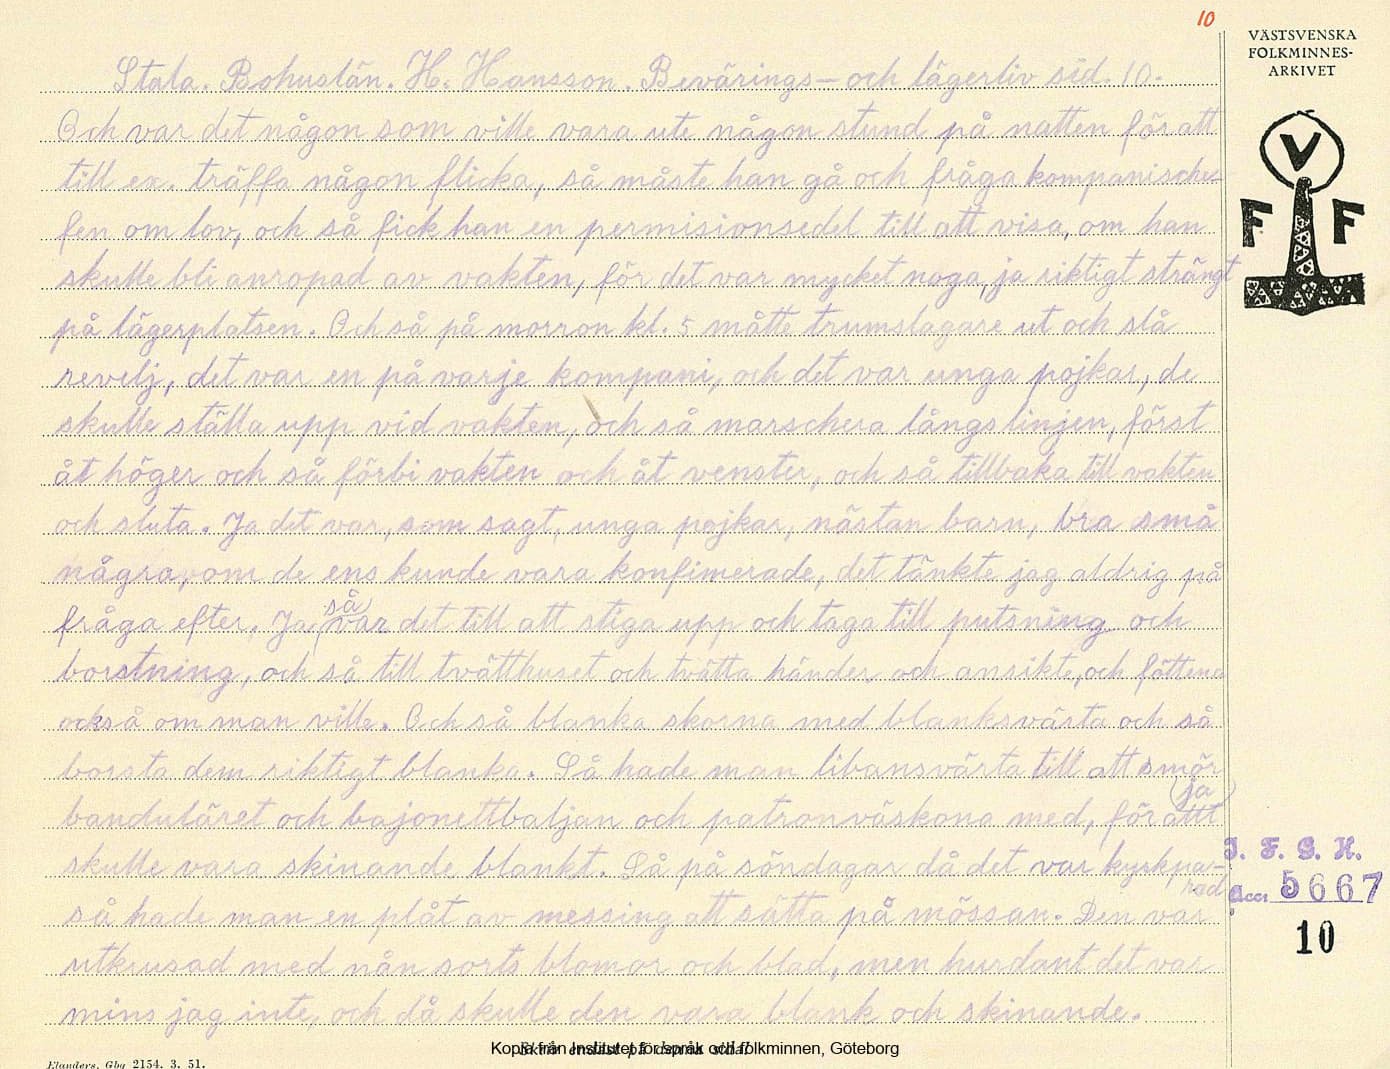 10
VÄSTSVENSKA
FOLKMINNES-
ARKIVET
V
F F
Stala. Bohuslän. H. Hansson. Bevärings- och lägerliv sid. 10.
Och var det någon som ville vara ute någon stund på natten för att
till ex. träffa någon flicka, så måste han gå och fråga kompanische-
fen om lov, och så fick han en permisionsedel till att visa, om han
skulle bli anropad av vakten, för det var mycket noga, ja riktigt strängt
på lägerplatsen. Och så på morron kl. 5 måtte trumslagare ut och slå
revelj, det var en på varje kompani, och det var unga pojkar, de
skulle ställa upp vid vakten, och så marschera längs linjen, först
åt höger och så förbi vakten och åt venster, och så tillbaka till vakten
och sluta. Ja det var, som sagt, unga pojkar, nästan barn, bra små
några, om de ens kunde vara konfimerade, det tänkte jag aldrig på
fråga efter. Ja så var det till att stiga upp och taga till putsning och
borstning, och så till tvätthuset och tvätta händer och ansikte, och föttena
också om man ville. Och så blanka skorna med blanksvärta och så
borsta dem riktigt blanka. Så hade man libansvärta till att smör
ja
banduläret och bajonettbaljan och patronväskona med, för allt
skulle vara skinande blankt. Så på söndagar då det var kyrkpa-
rad
så hade man en plåt av messing att sätta på mössan. Den var
utkrusad med nån sorts blomor och blad, men hurdant det var
mins jag inte, och då skulle den vara blank och skinande.
I. F. G. H.
Acc. 5667
10
Skriv endast på denna sida!
Kopia från Institutet för språk och folkminnen, Göteborg
Elanders, Gbg 2154. 3. 51.